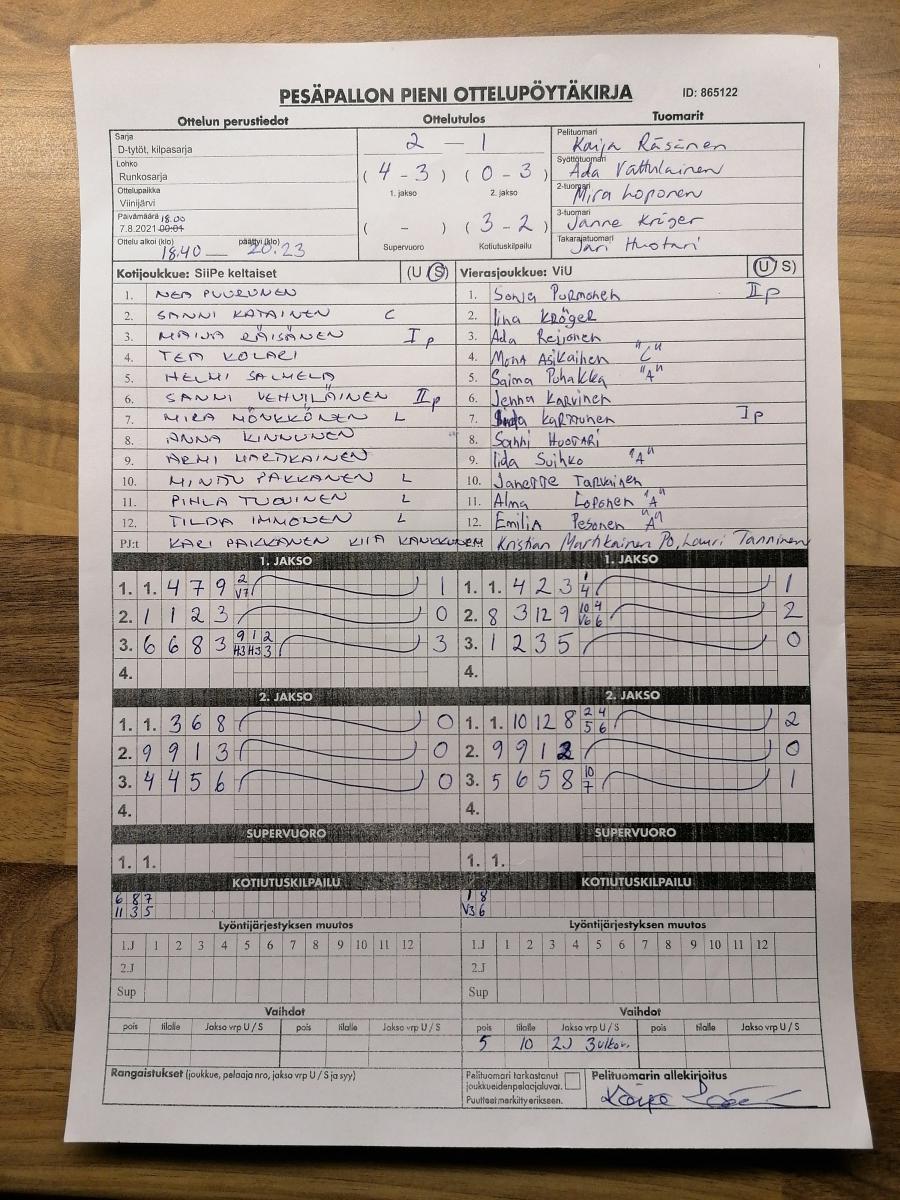 PESÄPALLON PIENI OTTELUPÖYTÄKIRJA ID: 865122
Ottelun perustiedot Ottelutulos Tuomarit
Sarja
D-tytöt, kilpasarja
Lohko
Runkosarja
Ottelupaikka
Viinijärvi
Päivämäärä 18.00
7.8.2021 00:01
Ottelu alkoi (klo) päättyi (klo)
18.40 — 20.23
2 — 1
( 4 - 3 ) ( 0 - 3 )
1. jakso 2. jakso
( - ) ( 3 - 2 )
Supervuoro Kotiutuskilpailu
Pelituomari
Kaija Räsänen
Syöttötuomari
Ada Vattulainen
2-tuomari
Mira Loponen
3-tuomari
Janne Kröger
Takarajatuomari
Jari Huotari
Kotijoukkue: SiiPe keltaiset (U S)
1. NEA PUURUNEN
2. SANNI KATAINEN C
3. MAIJA RÄISÄNEN I p
4. TEA KOLARI
5. HELMI SALMELA
6. SANNI VEHVILÄINEN II p
7. MIRA MÖNKKÖNEN L
8. ANNA KINNUNEN
9. ARMI MARTIKAINEN
10. MINTTU PAKKANEN L
11. PIHLA TUOVINEN L
12. TILDA IMMONEN L
PJ:t KARI PAKKANEN KIIA KAUKKUNEN
Vierasjoukkue: ViU (U S)
1. Sonja Purmonen II p
2. Iina Kröger
3. Ada Reijonen
4. Mona Asikainen "C"
5. Saima Puhakka "A"
6. Jenna Karvinen
7. Karttunen I p
8. Sanni Huotari
9. Iida Suihko "A"
10. Janette Tarvainen
11. Alma Loponen "A"
12. Emilia Pesonen "A"
Kristian Martikainen Po, Lauri Tanninen
1. JAKSO
1. 1. 4 7 9 2 1
V7
2. 1 1 2 3 0
3. 6 6 8 3 9 1 2 3
H3 H3 3
4.
1. JAKSO
1. 1. 4 2 3 1 1
4
2. 8 3 12 9 10 4 2
V6 6
3. 1 2 3 5 0
4.
2. JAKSO
1. 1. 3 6 8 0
2. 9 9 1 3 0
3. 4 4 5 6 0
4.
2. JAKSO
1. 1. 10 12 8 2 4 2
5 6
2. 9 9 1 2 0
3. 5 6 5 8 10 1
7
4.
SUPERVUORO SUPERVUORO
1. 1. 1. 1.
KOTIUTUSKILPAILU KOTIUTUSKILPAILU
6 8 7 1 8
11 3 5 V3 6
Lyöntijärjestyksen muutos Lyöntijärjestyksen muutos
1.J 1 2 3 4 5 6 7 8 9 10 11 12 1.J 1 2 3 4 5 6 7 8 9 10 11 12
2.J 2.J
Sup Sup
Vaihdot Vaihdot
pois tilalle Jakso vrp U / S pois tilalle Jakso vrp U / S pois tilalle Jakso vrp U / S pois tilalle Jakso vrp U / S
5 10 2J 3ulkov.
Rangaistukset (joukkue, pelaaja nro, jakso vrp U / S ja syy)
Pelituomari tarkastanut
joukkueidenpelaajaluvat.
Puutteet merkitty erikseen.
Pelituomarin allekirjoitus